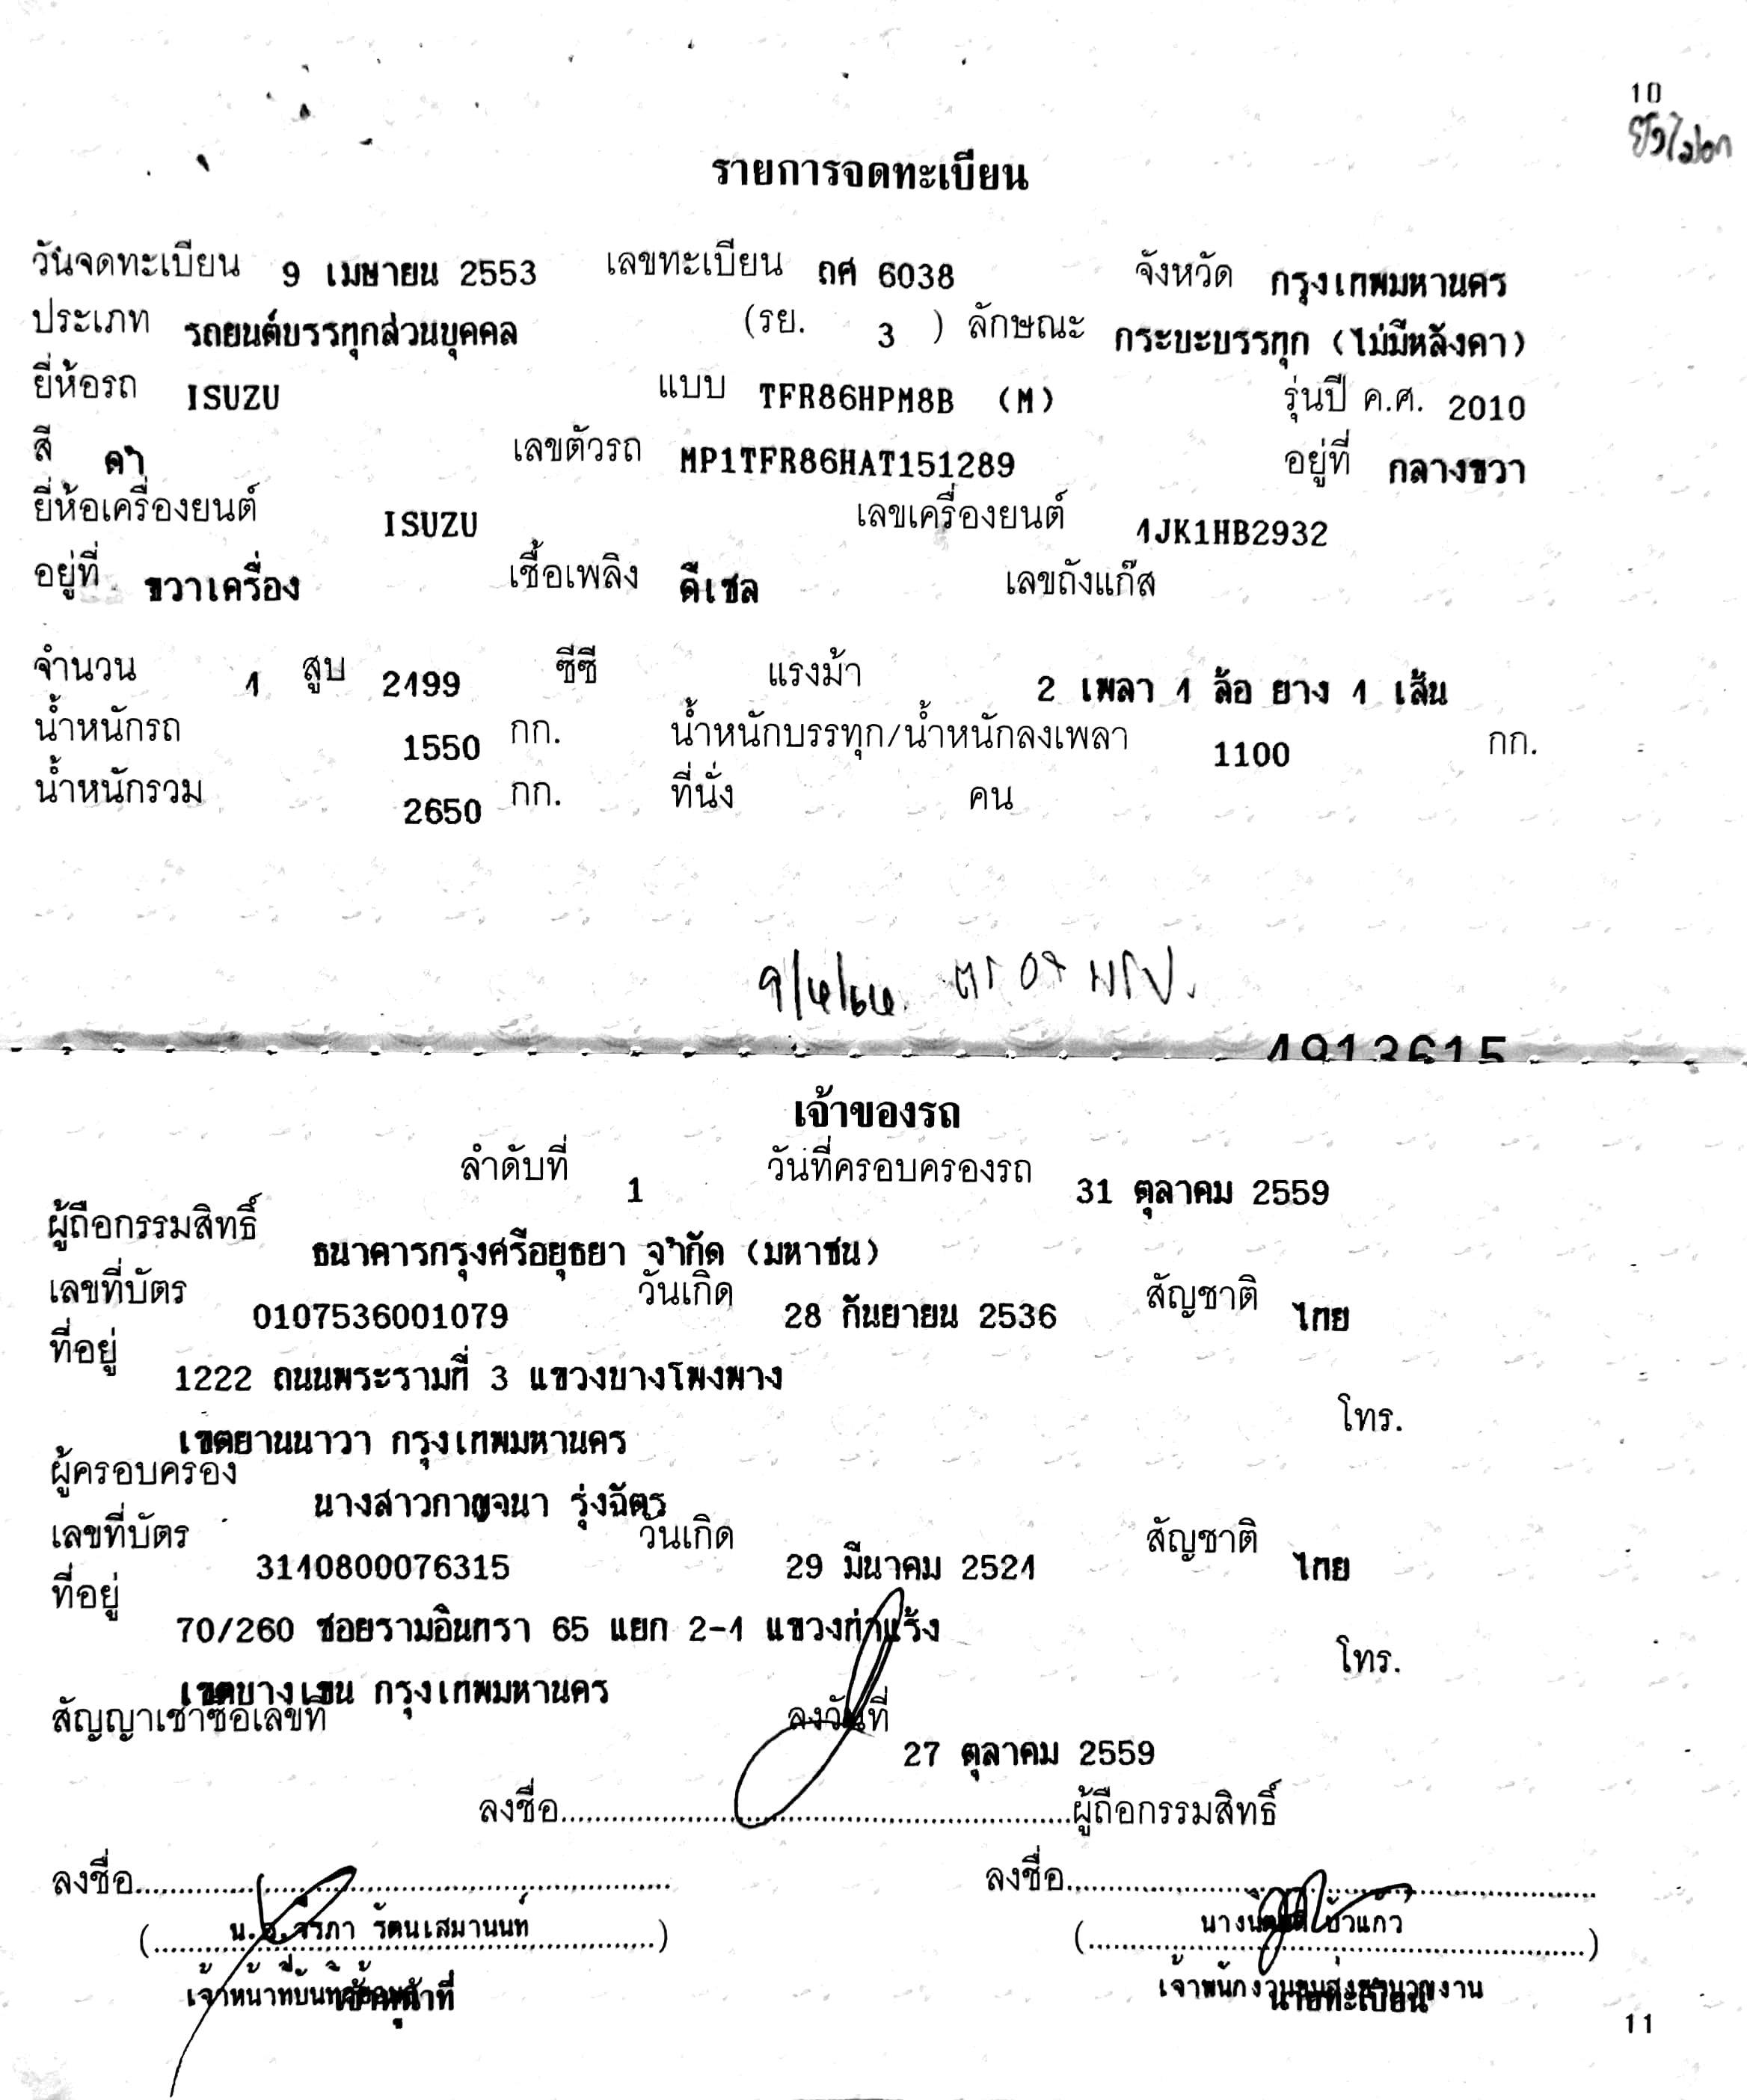 10
รายการจดทะเบียน
วันจดทะเบียน 9 เมษายน 2553 เลขทะเบียน ถศ 6038 จังหวัด กรุงเทพมหานคร
ประเภท รถยนต์บรรทุกส่วนบุคคล (รย. 3 ) ลักษณะ กระบะบรรทุก (ไม่มีหลังคา)
ยี่ห้อรถ ISUZU แบบ TFR86HPM8B (M) รุ่นปี ค.ศ. 2010
สี ดำ เลขตัวรถ MP1TFR86HAT151289 อยู่ที่ กลางขวา
ยี่ห้อเครื่องยนต์ ISUZU เลขเครื่องยนต์ 4JK1HB2932
อยู่ที่ ขวาเครื่อง เชื้อเพลิง ดีเซล เลขถังแก๊ส
จำนวน 4 สูบ 2499 ซีซี แรงม้า 2 เพลา 4 ล้อ ยาง 4 เส้น
น้ำหนักรถ 1550 กก. น้ำหนักบรรทุก/น้ำหนักลงเพลา 1100 กก.
น้ำหนักรวม 2650 กก. ที่นั่ง คน
9/4/64
4913615
เจ้าของรถ
ลำดับที่ 1 วันที่ครอบครองรถ 31 ตุลาคม 2559
ผู้ถือกรรมสิทธิ์ ธนาคารกรุงศรีอยุธยา จำกัด (มหาชน)
เลขที่บัตร 0107536001079 วันเกิด 28 กันยายน 2536 สัญชาติ ไทย
ที่อยู่ 1222 ถนนพระรามที่ 3 แขวงบางโพงพาง
เขตยานนาวา กรุงเทพมหานคร โทร.
ผู้ครอบครอง นางสาวกาญจนา รุ่งฉัตร
เลขที่บัตร 3140800076315 วันเกิด 29 มีนาคม 2524 สัญชาติ ไทย
ที่อยู่ 70/260 ซอยรามอินทรา 65 แยก 2-4 แขวงท่าแร้ง
เขตบางเขน กรุงเทพมหานคร โทร.
สัญญาเช่าซื้อเลขที่ ลงวันที่ 27 ตุลาคม 2559
ลงชื่อ ผู้ถือกรรมสิทธิ์
ลงชื่อ ลงชื่อ
(น.ส.จิรภา รัตนเสมานนท์) (นาง บัวแก้ว)
เจ้าหน้าที่บันทึกข้อมูล เจ้าพนักงานขนส่งชำนาญงาน
เจ้าหน้าที่ นายทะเบียน
11